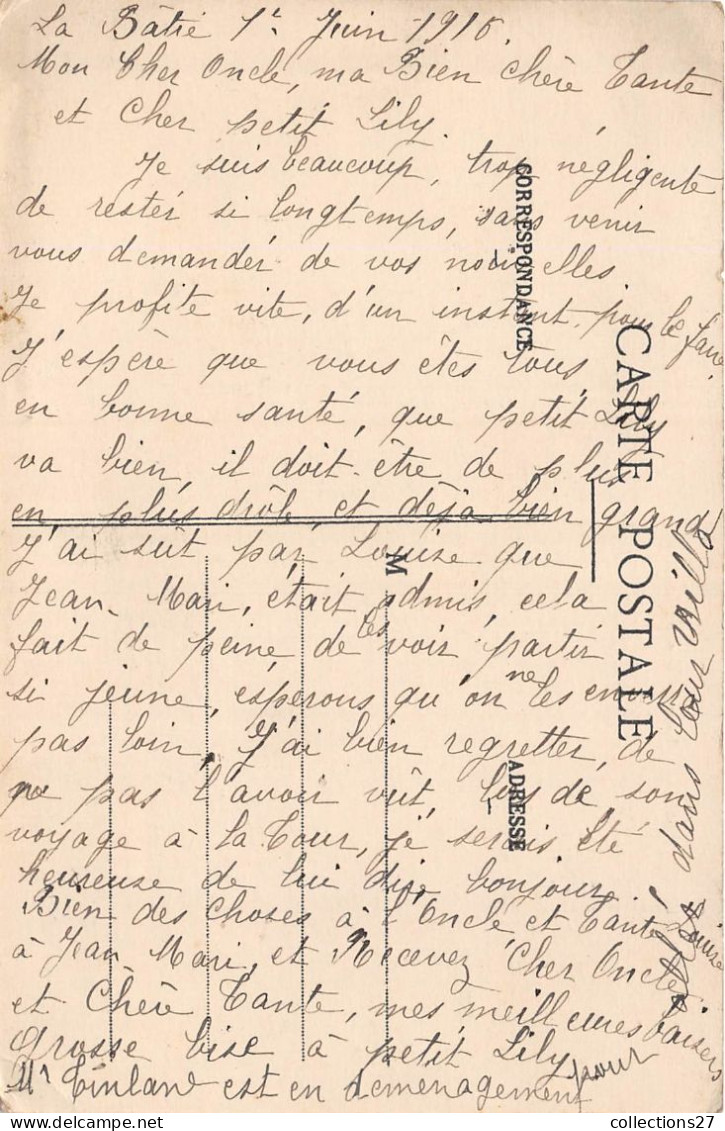 La Bâtie 1r Juin 1916.
Mon Cher Oncle, ma Bien chère Tante
et Cher petit Lily.
Je suis beaucoup, trop négligente
de restér si longtemps, sans venir
vous demandér de vos nouvelles.
Je profite vite, d'un instant, pour le faire.
J'espère que vous êtes tous,
en bonne santé, que petit Lily
va bien, il doit-être de plus
en, plus drôle, et déja bien grand
J'ai sût par, Louise que
Jean-Mari, était admis, cela
fait de peine de les voir partir
si jeune, espérons qu'on ne les envoie
pas loin, J'ai bien regretter, de
ne pas l'avoir vût, lors de son
voyage à la Tour, je serais été
heureuse de lui dire bonjour.
Bien des choses à l'Oncle et Tante
à Jean Mari, et Recevez Cher Oncle
et Chère Tante, mes meilleures baisers
Grosse bise à petit Lily
Mr Finland est en demenagement pour
dans leur villa
Louise
CORRESPONDANCE
CARTE POSTALE
M
ADRESSE
collections27